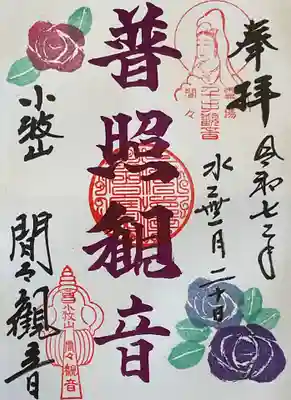 奉拝
令和七年
水無月二十日
霊場
千手觀音
間々
普照観音
小牧山
間々観音
小牧山
間々観音